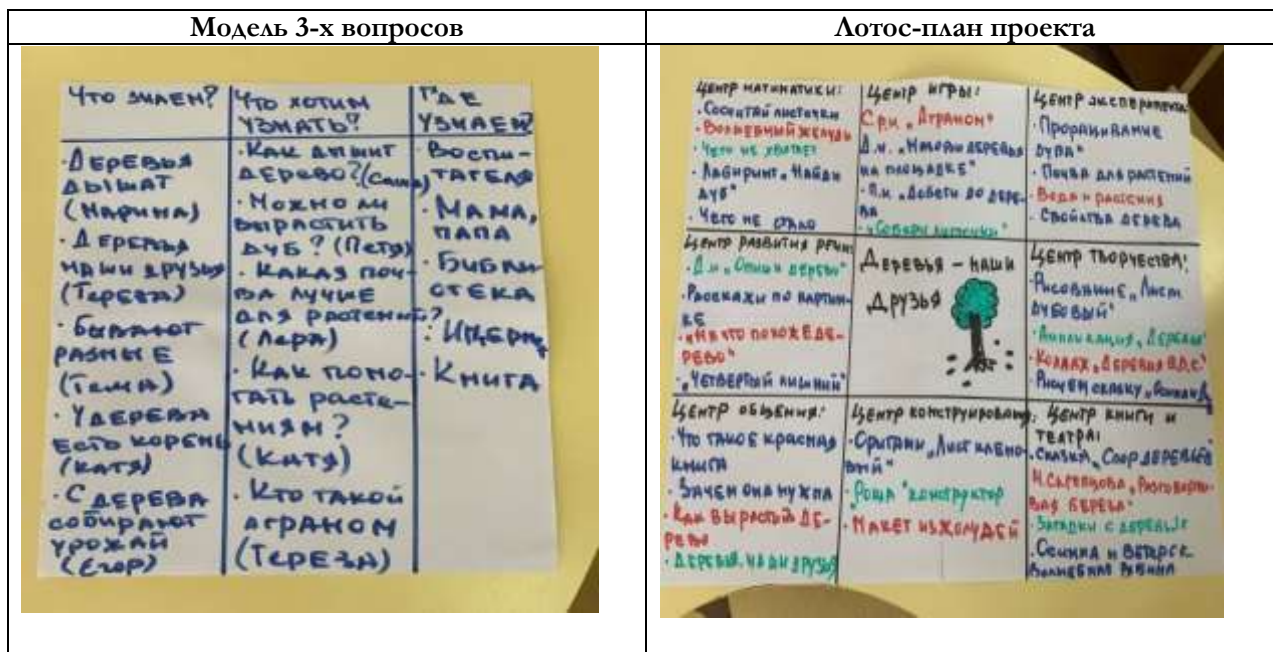 Модель 3-х вопросов
Что знаем?
· Деревья
дышат
(Марина)
· Деревья
наши друзья
(Тереза)
· Бывают
разные
(Тёма)
· У дерева
есть корень
(Катя)
· С дерева
собирают
урожай
(Егор)
Что хотим
узнать?
· Как дышит
дерево? (Саша)
· Можно ли
вырастить
дуб? (Петя)
· Какая поч-
ва лучше
для растений?
(Лера)
· Как помо-
гать расте-
ниям?
(Катя)
· Кто такой
аграном
(Тереза)
Где
узнаем?
· Воспи-
тателя
· Мама,
папа
· Библи-
отека
· Книга
Лотос-план проекта
Центр математики:
· Сосчитай листочки
· Волшебный желудь
· Чего не хватает
· Лабиринт „Найди
дуб"
· Чего не стало
Центр игры:
С.р.и. „Аграном"
Д.и. „Найди деревья
на площадке"
· П.и. „Добеги до дере-
ва
· „Собери листочки"
Центр эксперимента
· Проращивание
дуба"
· Почва для растений
· Вода и растения
· Свойства дерева
Центр развития речи:
· Д.и. „Опиши дерево"
· Расскажи по картин-
ке
· „На что похоже де-
рево"
· „Четвертый лишний"
Деревья – наши
друзья
Центр творчества:
· Рисование „Лист
дубовый"
· Аппликация „Деревья"
· Коллаж „Деревья В.Д.С."
· Рисуем сказку
Центр общения:
· Что такое красная
книга
· Зачем она нужна
· Как вырастить де-
рево
· Деревья наши друзья
Центр конструирования:
· Оригами „Лист клено-
вый"
· „Роща" конструктор
· Макет из желудей
Центр книги и
театра:
· Сказка „Спор деревьев
· Загадки о деревьях
· Осинка и ветерок
Волшебная рябина